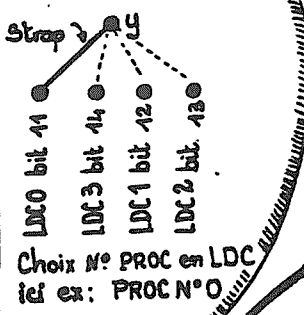 Strap
y
LDC0 bit 11
LDC3 bit 14
LDC1 bit 12
LDC2 bit 13
Choix Nº PROC en LDC
ici ex: PROC Nº0